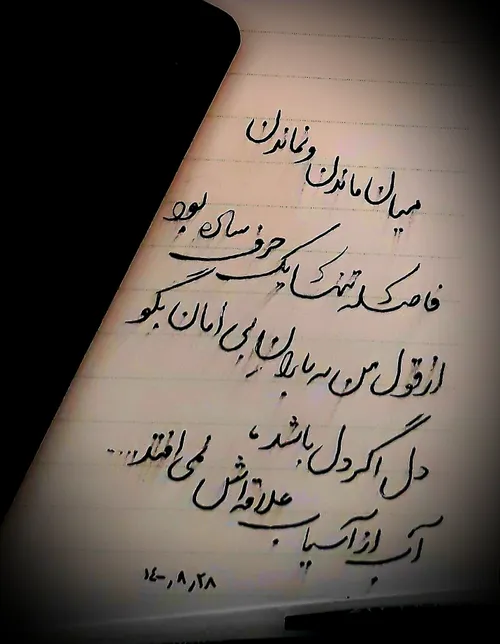 میان ماندن و نماندن
فاصله تنها یک حرف ساده بود
از قول من به باران بی امان بگو
دل اگر دل باشد،
آب از آسیاب علاقه‌اش نمی افتد...
۱۴۰۰٫۸٫۲۸